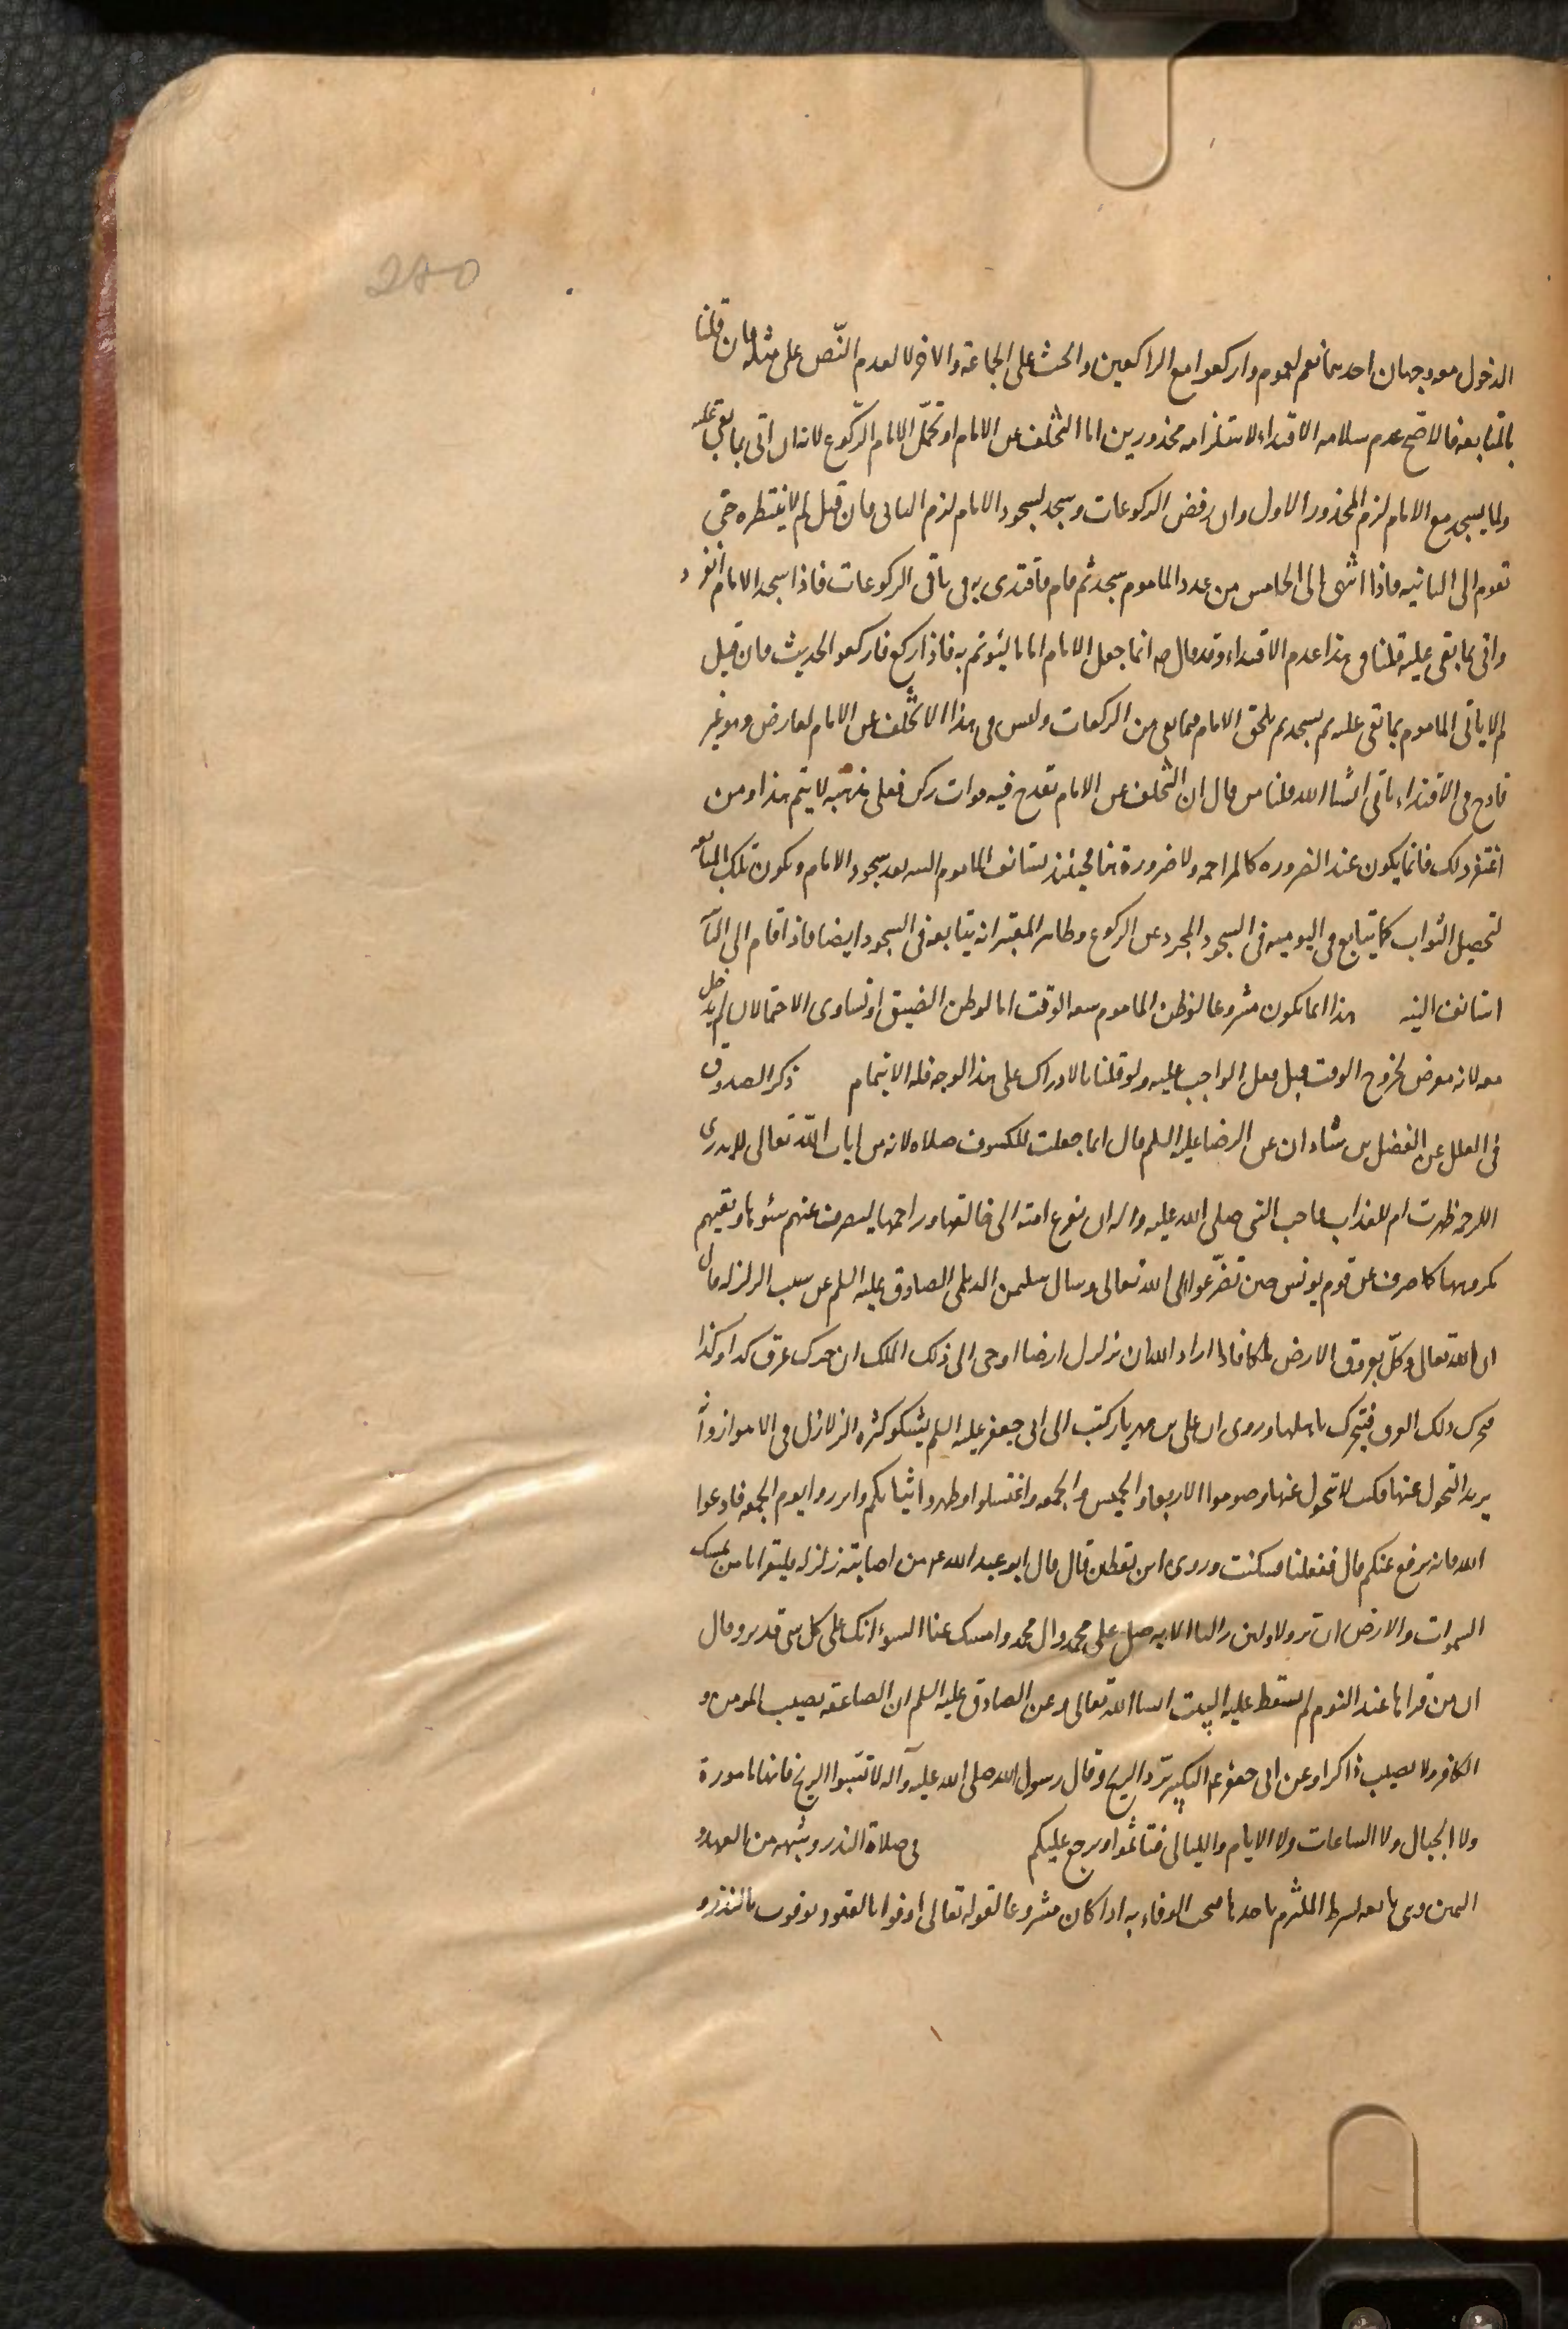 280
الدخول معه وجهان احدهما نعم لعموم واركعوا مع الراكعين والحث على الجماعة والاخر لا لعدم النّص على مثله فان قلنا
بالمتابعة فالاصح عدم سلامه الاقتداء لاستلزامه محذورين اما التخلف عن الامام او تحمّل الامام الركوع لانه ان اتى بما بقي عليه
ولما يسجد مع الامام لزم المحذور الاول وان رفض الركوعات وسجد لسجود الامام لزم الثاني فان قيل لم لا ينتظره حتى
تقوم الى الثانيه فاذا انتهى الى الخامس من عدد الماموم سجد ثم قام فاقتدى به في باقي الركوعات فاذا سجد الامام انفرد
واتى بما بقى عليه قلنا في هذا عدم الاقتداء وقد قال ص انما جعل الامام اماما ليئوتم به فاذا ركع فاركعوا الحديث فان قيل
لم لا ياتي الماموم بما بقى عليه ثم يسجد ثم يلحق الامام فيما بقى من الركعات وليس في هذا الا تخلف عن الامام لعارض وهو غير
قادح في الاقتداء ياتي انشا الله قلنا من قال ان التخلف عن الامام تقدح فيه فوات ركن فعلى مذهبه لا يتم هذا ومن
اغتفر ذلك فانما يكون عند الضروره كالمزاحمه ولا ضرورة هنا فحينئذ يستانف الماموم النيه بعد سجود الامام ويكون تلك المتابعه
لتحصيل الثواب كما يتابع في اليوميه في السجود المجرد عن الركوع وظاهر المعتبر انه يتابعه في السجود ايضا فاذا قام الى الثا
استانف النيه هذا انما يكون مشروعا لو ظن الماموم سعه الوقت اما لو ظن الضيق او تساوى الاحتمالان لم يدخل
معه لانه معرض لخروج الوقت قبل فعل الواجب عليه ولو قلنا بالادراك على هذا الوجه فله الائتمام ذكر الصدوق
في العلل عن الفضل بن شاذان عن الرضا عليه السلم قال انما جعلت للكسوف صلاه لانه من ايات الله تعالى لا يدرى
الرحمه ظهرت ام لعذاب فاحب النبي صلى الله عليه واله ان تفزع امته الى خالقها وراحمها ليصرف عنهم سئوها ويقيهم
مكروهها كما صرف عن قوم يونس حين تضرّعوا الى الله تعالى وسال سليمن الديلمي الصادق عليه السلم عن سبب الزلزله قال
ان الله تعالى وكل بعروق الارض ملكا فاذا اراد الله ان يزلزل ارضا اوحى الى ذلك الملك ان حرك عرق كذا وكذا
فيحرك ذلك العرق فتتحرك باهلها وروى ان على بن مهزيار كتب الى ابى جعفر عليه السلم يشكو كثره الزلازل في الاهواز وانه
يريد التحول عنها فكتب لا تتحول عنها وصوموا الاربعا والخميس والجمعه واغتسلوا وطهروا ثيابكم وابرزوا يوم الجمعه فادعوا
الله فانه يرفع عنكم قال ففعلنا فسكنت وروى ابن يقطين قال قال ابو عبد الله ع من اصابته زلزله فليقرا يا من يمسك
السموات والارض ان تزولا ولئن زالتا الايه صل على محمد وال محمد وامسك عنا السوء انك على كل شى قدير وقال
ان من قراها عند النوم لم يسقط عليه البيت انشا الله تعالى وعن الصادق عليه السلم ان الصاعقه يصيب المومن و
الكافر ولا يصيب ذاكرا وعن ابي جعفر ع م التكبير يرد الريح وقال رسول الله صلى الله عليه وآله لا تسبوا الريح فانها مامورة
ولا الجبال ولا الساعات ولا الايام والليالى فتاثموا ويرجع عليكم في صلاة النذر وشبهه من العهد و
اليمين وهى تابعه لشرط الملتزم باحدها فيجب الوفاء به اذا كان مشروعا لقوله تعالى اوفوا بالعقود يوفون بالنذر و